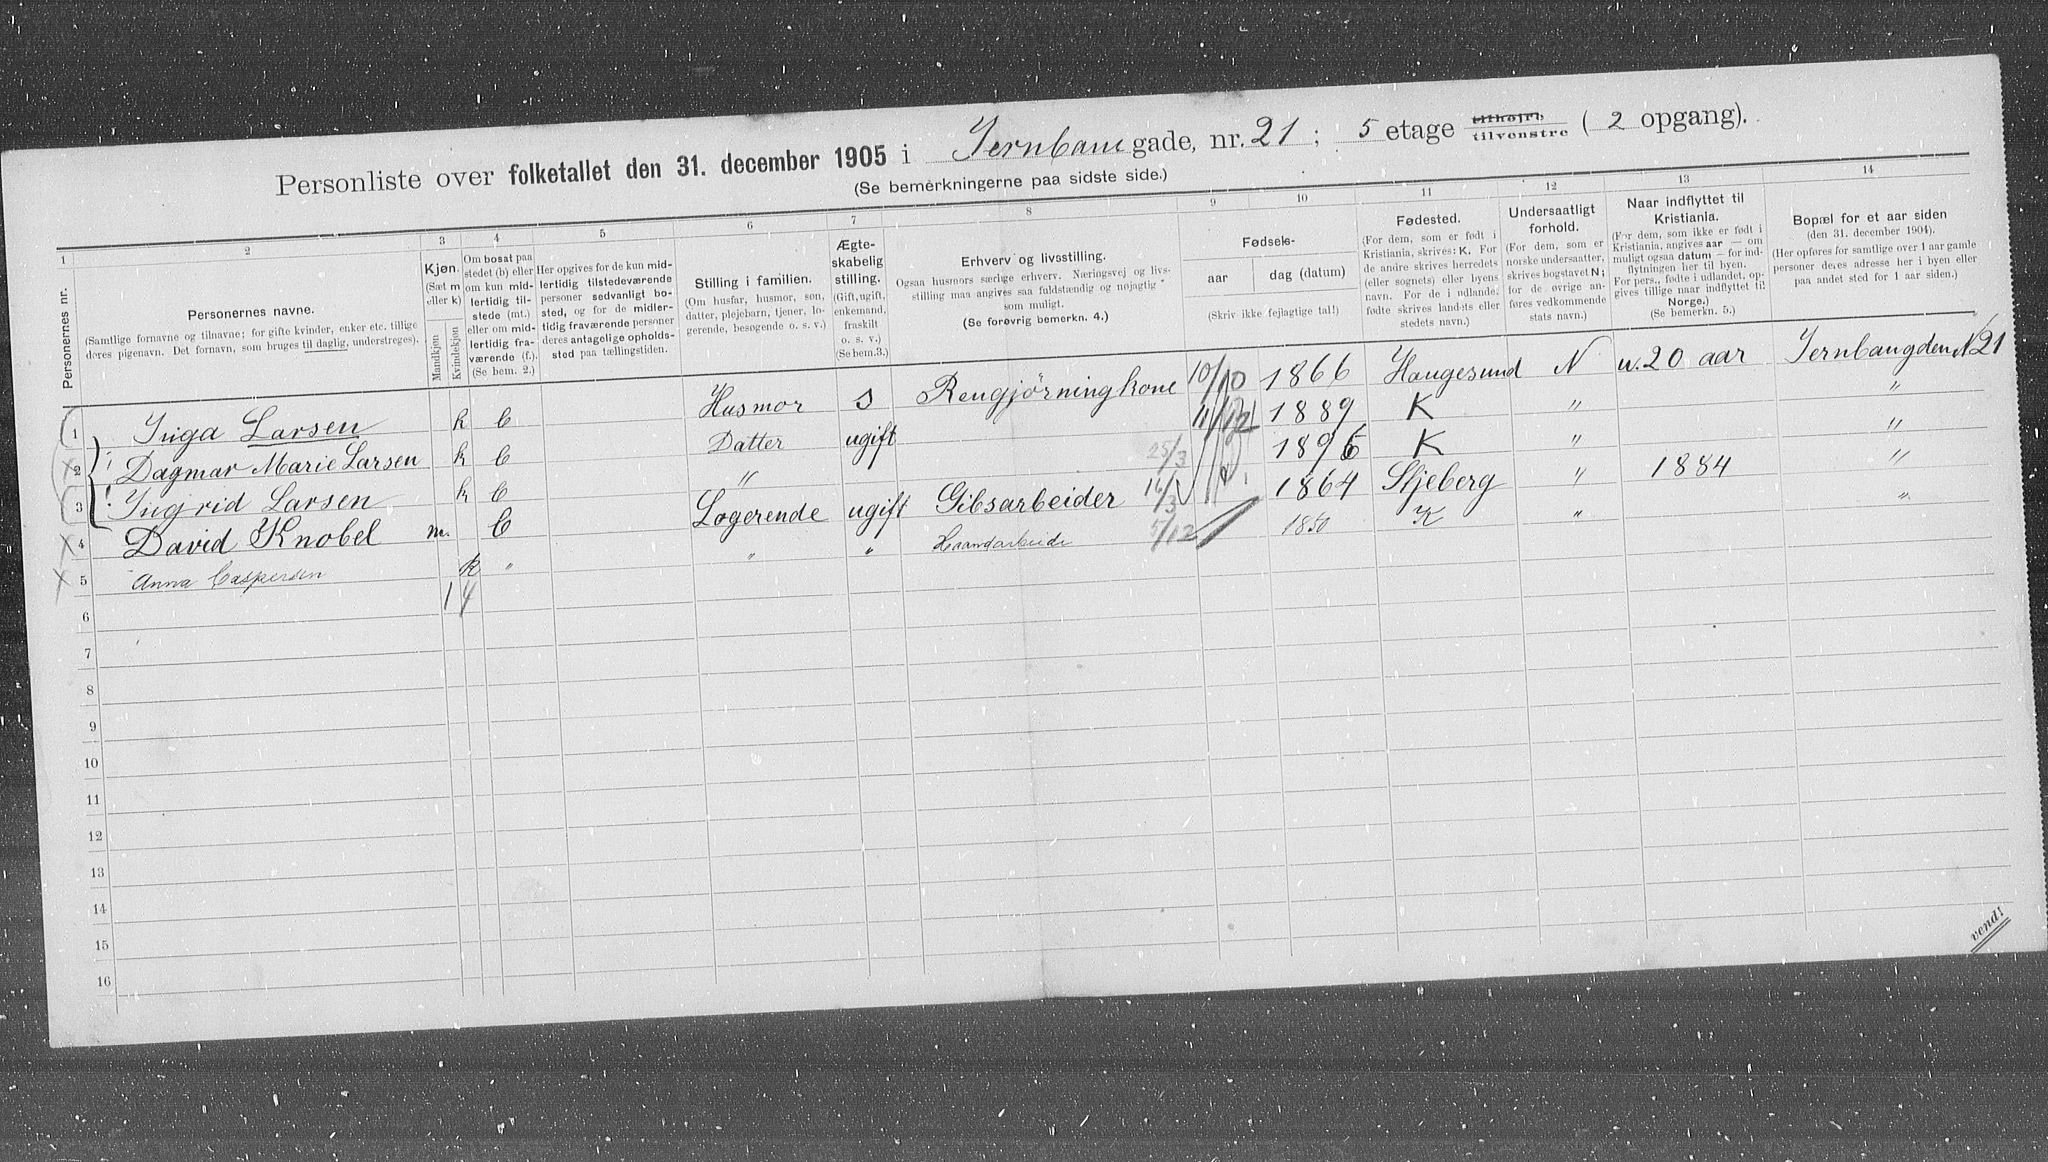 Personliste over folketallet den 31. december 1905 i Jernbane gade, nr. 21 ; 5 etage tilhøjre tilvenstre ( 2 opgang).
(Se bemerkningerne paa sidste side.)
1 2 3 4 5 6 7 8 9 10 11 12 13 14
Personernes nr.
Personernes navne.
(Samtlige fornavne og tilnavne; for gifte kvinder, enker etc. tillige
deres pigenavn. Det fornavn, som bruges til daglig, understreges).
Kjøn.
(Sæt m
eller k)
Mandkjøn
Kvindekjøn
Om bosat paa
stedet (b) eller
om kun mid-
lertidig til-
stede (mt.)
eller om mid-
lertidig fra-
værende (f.).
(Se bem. 2.)
Her opgives for de kun mid-
lertidig tilstedeværende
personer sedvanligt bo-
sted, og for de midler-
tidig fraværende personer
deres antagelige opholds-
sted paa tællingstiden.
Stilling i familien.
(Om husfar, husmor, søn,
datter, plejebarn, tjener, lo-
gerende, besøgende o. s. v.)
Ægte-
skabelig
stilling.
(Gift, ugift,
enkemand,
fraskilt
o. s. v.)
(Se bem.3.)
Erhverv og livsstilling.
Ogsaa husmors særlige erhverv. Næringsvej og livs-
stilling maa angives saa fuldstændig og nøjagtig
som muligt.
(Se forøvrig bemerkn. 4.)
Fødsels-
aar
dag (datum)
(Skriv ikke fejlagtige tal!)
Fødested.
(For dem, som er født i
Kristiania, skrives: K. For
de andre skrives herredets
(eller sognets) eller byens
navn. For de i udlande.
fødte skrives landets eller
stedets navn.)
Undersaatligt
forhold.
(For dem, som er
norske undersaatter,
skrives bogstavet N;
for de øvrige an-
føres vedkommende
stats navn.)
Naar indflyttet til
Kristiania.
(For dem, som ikke er født i
Kristiania, angives aar — om
muligt ogsaa datum — for ind-
flytningen her til byen.
For pers., fødte i udlandet, op-
gives tillige naar indflyttet til
Norge.)
(Se bemerkn. 5.)
Bopæl for et aar siden
(den 31. december 1904).
(Her opføres for samtlige over 1 aar gamle
personer deres adresse her i byen eller
paa andet sted for 1 aar siden.)
1 Inga Larsen k b Husmor s Rengjørningkone 10/10 1866 Haugesund N u. 20 aar Jernbangden N 21
2 Dagmar Marie Larsen k b Datter ugift 11/12 1889 K " "
3 Ingrid Larsen k b " 25/3 1896 K " "
4 David Knobel m. b Logerende ugift Gibsarbeider 16/3 1864 Skjeberg " 1884 "
5 Anna Caspersen k " " " Haandarbeide 5/12 1850 K " "
6 1 4
7
8
9
10
11
12
13
14
15
16
vend!